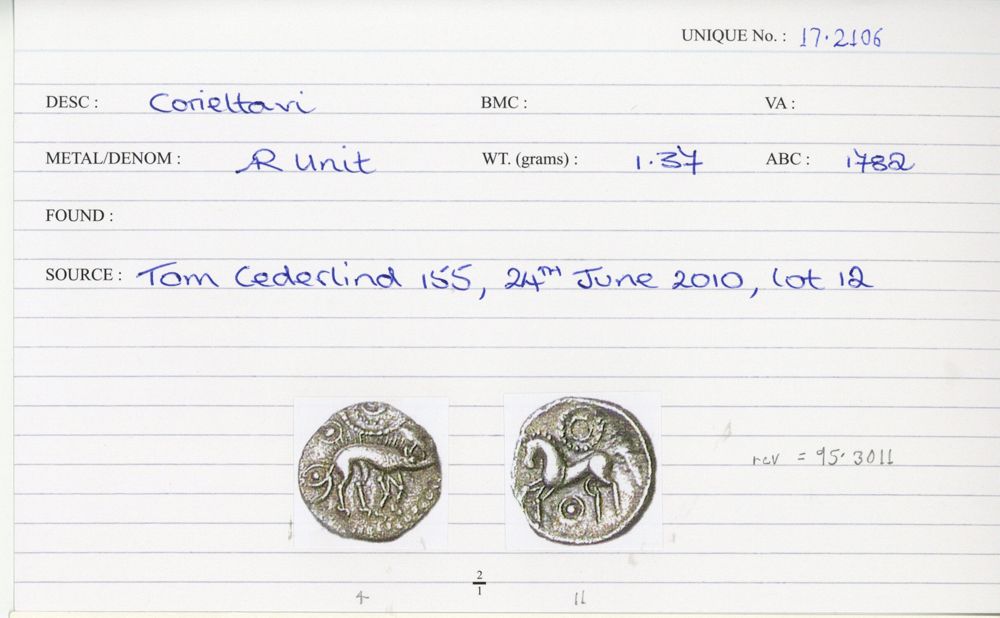 UNIQUE No. : 17.2106
DESC : Corieltavi BMC : VA :
METAL/DENOM : AR Unit WT. (grams) : 1.37 ABC : 1782
FOUND :
SOURCE : Tom Cederlind 155, 24TH June 2010, lot 12
rev = 95.3011
2/1
4 11